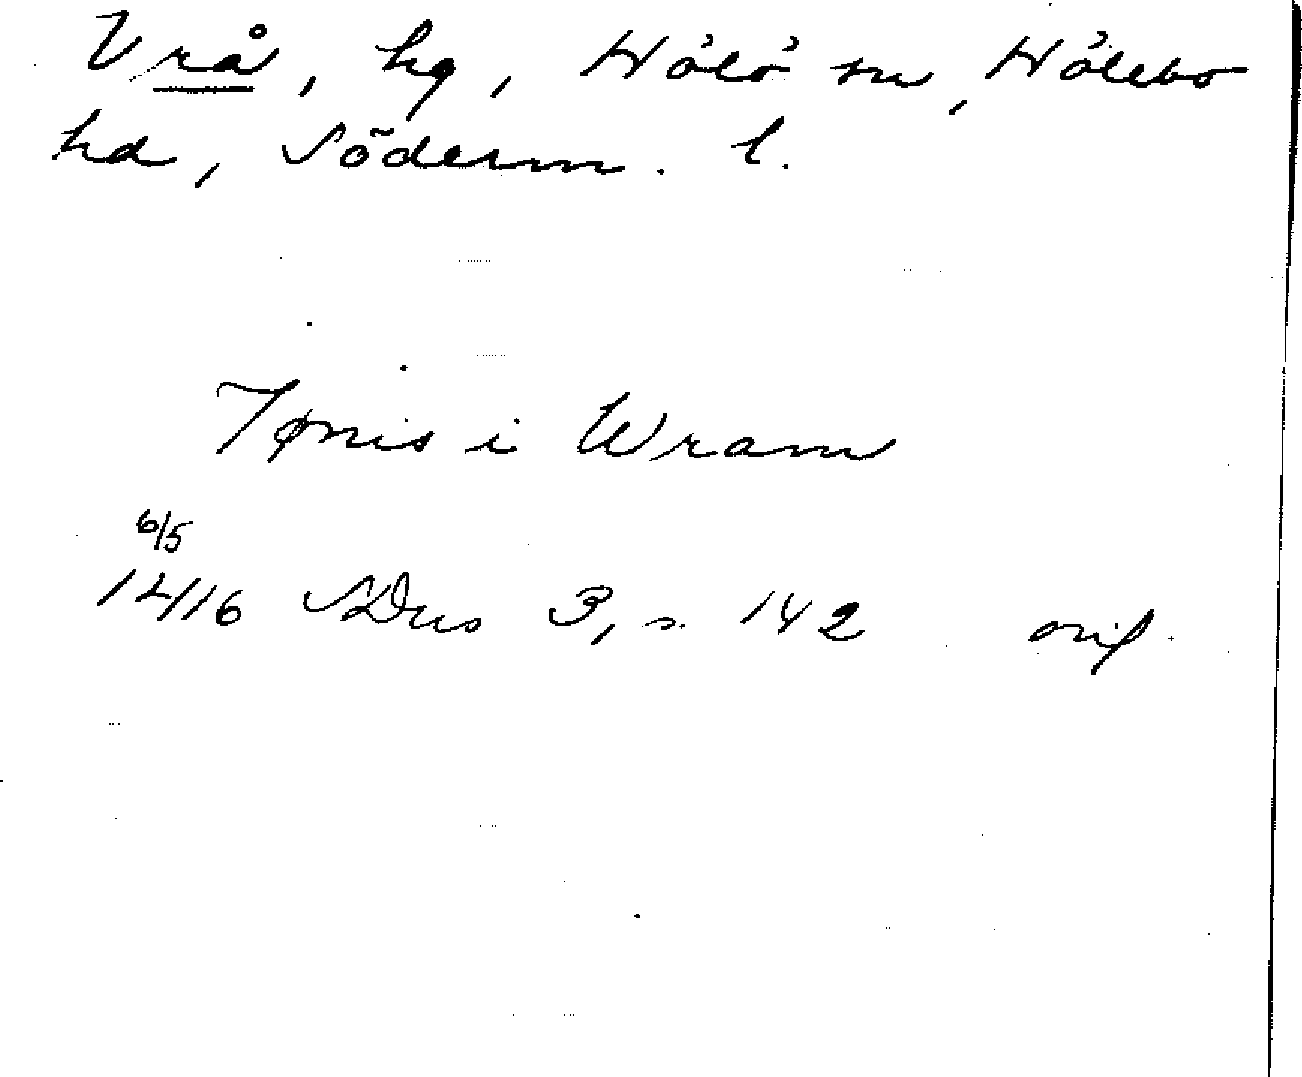 Vrå, hg, Hölö sn, Hölebo
hd, Söderm. l.
Tønis i Wram
6/5
1216 SDns 3, s. 142 orig.